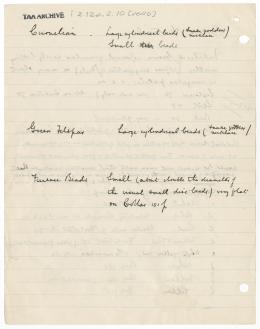 TAA ARCHIVE i 2.12a.2.10 (verso)
Carnelian. Large cylindrical beads (
necklace
Small beads
Green Felspar Large cylindrical beads (
necklace
Faience Beads Small (about double the diameter of
the usual small disc beads) very flat
on Collar